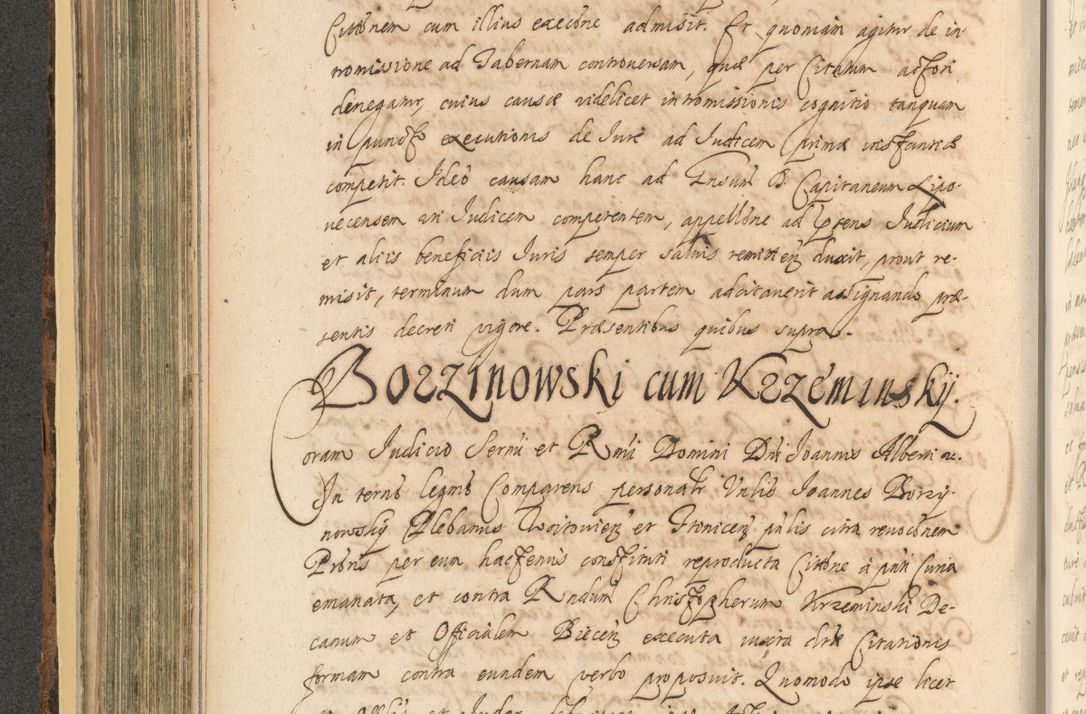 Cittonem cum illius execõne admisit. Et quoniam agitur de in
tromissione ad Tabernam controversam, quæ per Citatum actori
denegatur, cuius causæ videlicet intromissionis cognitio tanquam
in puncto executionis de Jure ad Judicem primæ instantiæ
competit. Ideò causam hanc ad Gnsum D. Capitaneum Lipo-
vecensem uti Judicem competentem, appellõne ad Prsens Judicium
et aliis beneficiis Juris semper salvis remitten duxit, prout re-
misit, terminum dum pars partem adcitaverit assignando præ-
sentis decreti vigore. Præsentibus quibus supra.
Borzinowski cum Krzeminskÿ.
Coram Judicio Sermi et Rmi Domini Dni Joannis Alberti &c.
In termõ legmõ Comparens personalr Vnlis Joannes Borzy-
nowskÿ Plebanus Woitovien et Itonicen pñlis citra revocõnem
Prõris per eum hactenus constituti reproducta Cittõne à pñti Curia
emanata, et contra Rndum Christopherum Krzeminski De-
canum et Officialem Biecen executa iuxta dctæ Citationis
formam contra eundem verbo proposuit. Quomodo ipse licet